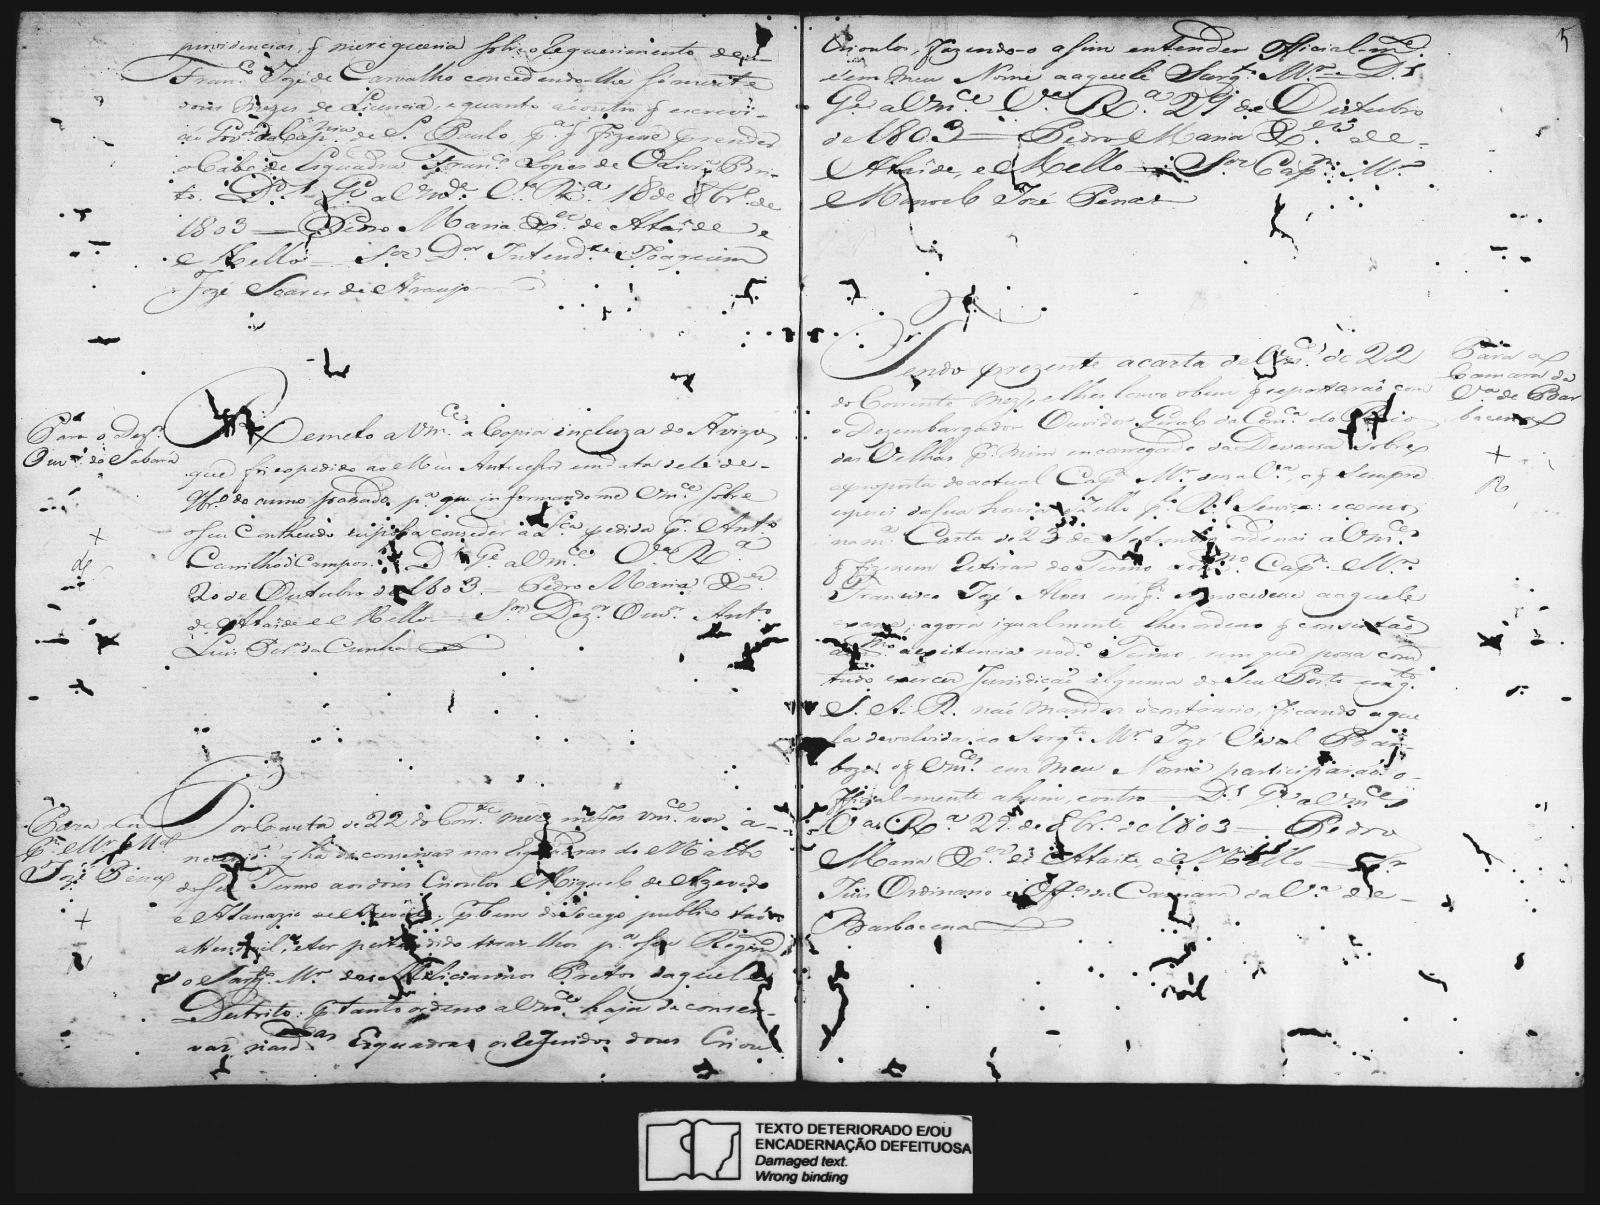 providencias, q merigueria sobre o Requerimento de
Franco Jozé de Carvalho concedendo-lhe somente
dous Mezes de Licença, e quanto ao outro q escrevi
ao Govor da Capnia de S. Paulo, pa q fizesse prender
o Cabo de Esquadra Franco Lopes de Olivra Bri-
to. Ds Ge a Vmce Va Ra 18 de 8bro de
1803 — Pedro Maria Xer de Ataide e
Mello — Sor Dor Intendte Joaquim
Jozé Soares de Araujo
Para o Dezor
Ouvor do Sabará
Remeto a Vmce a Copia incluza do Avizo
que foi expedido ao Meu Antecessor em data de 16 de
9bro do anno passado, pa que informando me Vmce sobre
o seu Contheudo eu possa conceder a Lca pedida pr Anto
Camilho Campos. Ds Ge a Vmce Va Ra
20 de Outubro de 1803 — Pedro Maria Xer
de Ataide e Mello — Sor Dezor Ouvor Anto
Luis Pera da Cunha
Para o
Cap. Mr Mel
Jozé Penas
Por Carta de 22 do Corre mez
q ha de conservar nas Esquadras do Matto
do seu Termo aos dous Crioulos Miguel de Azevedo
e Atanazio de Azevedo, pr bem do Socego publico
pertendido tirar lhos pa o seu Regimo
o Sargto Mr dos Milicianos Pretos daquele
Destrito: pr tanto ordeno a Vmce haja de conser-
var nas das Esquadras os referidos dous Criou
5
Crioulos, fazendo-o assim entender Oficial-me
e em meu Nome aaquele Sargto Mr — Ds
Ge a Vmce Va Ra 29 de Outubro
de 1803 — Pedro Maria Xer de
Ataide, e Mello — Sor Capm Mr
Manoel Jozé Penas
Para a
Camara da
Va de Bar
bacena
Sendo prezente a carta de Vmces de 22
do Corrente Mez, e lhes louvo o bem q reportarão com
o Dezembargador Ouvidor Geral da Comca do Rio
das Velhas pr mim encarregado da Devassa sobre
a proposta do actual Capm Mr dessa Va, o q sempre
esperei da sua honra e Zello po Rl Serviço: e como
na ma Carta de 23 de Setembro ordenei a Vmces
q fizessem retirar do Termo ao mmo Capm Mr
Francisco Jozé Alves em qto se procedesse aaquele
exame; agora igualmente lhes ordeno q consintão
a rezistencia no do Termo, sem que possa com
tudo exercer Jurisdição alguma do seu Posto emqto
S. A. R. não mandar o contrario, ficando aque
la devolvida ao Sargto Mr Jozé Vidal Bar-
boza o q Vmces em meu Nome participarão o-
fficial-mente a hum, e outro — Ds Ge a Vmces
Va Ra 29 de 8bro de 1803 — Pedro
Maria Xer de Ataide e Mello — Sr
Juis Ordinario e Offes da Camara da Va de
Barbacena
TEXTO DETERIORADO E/OU
ENCADERNAÇÃO DEFEITUOSA
Damaged text.
Wrong binding